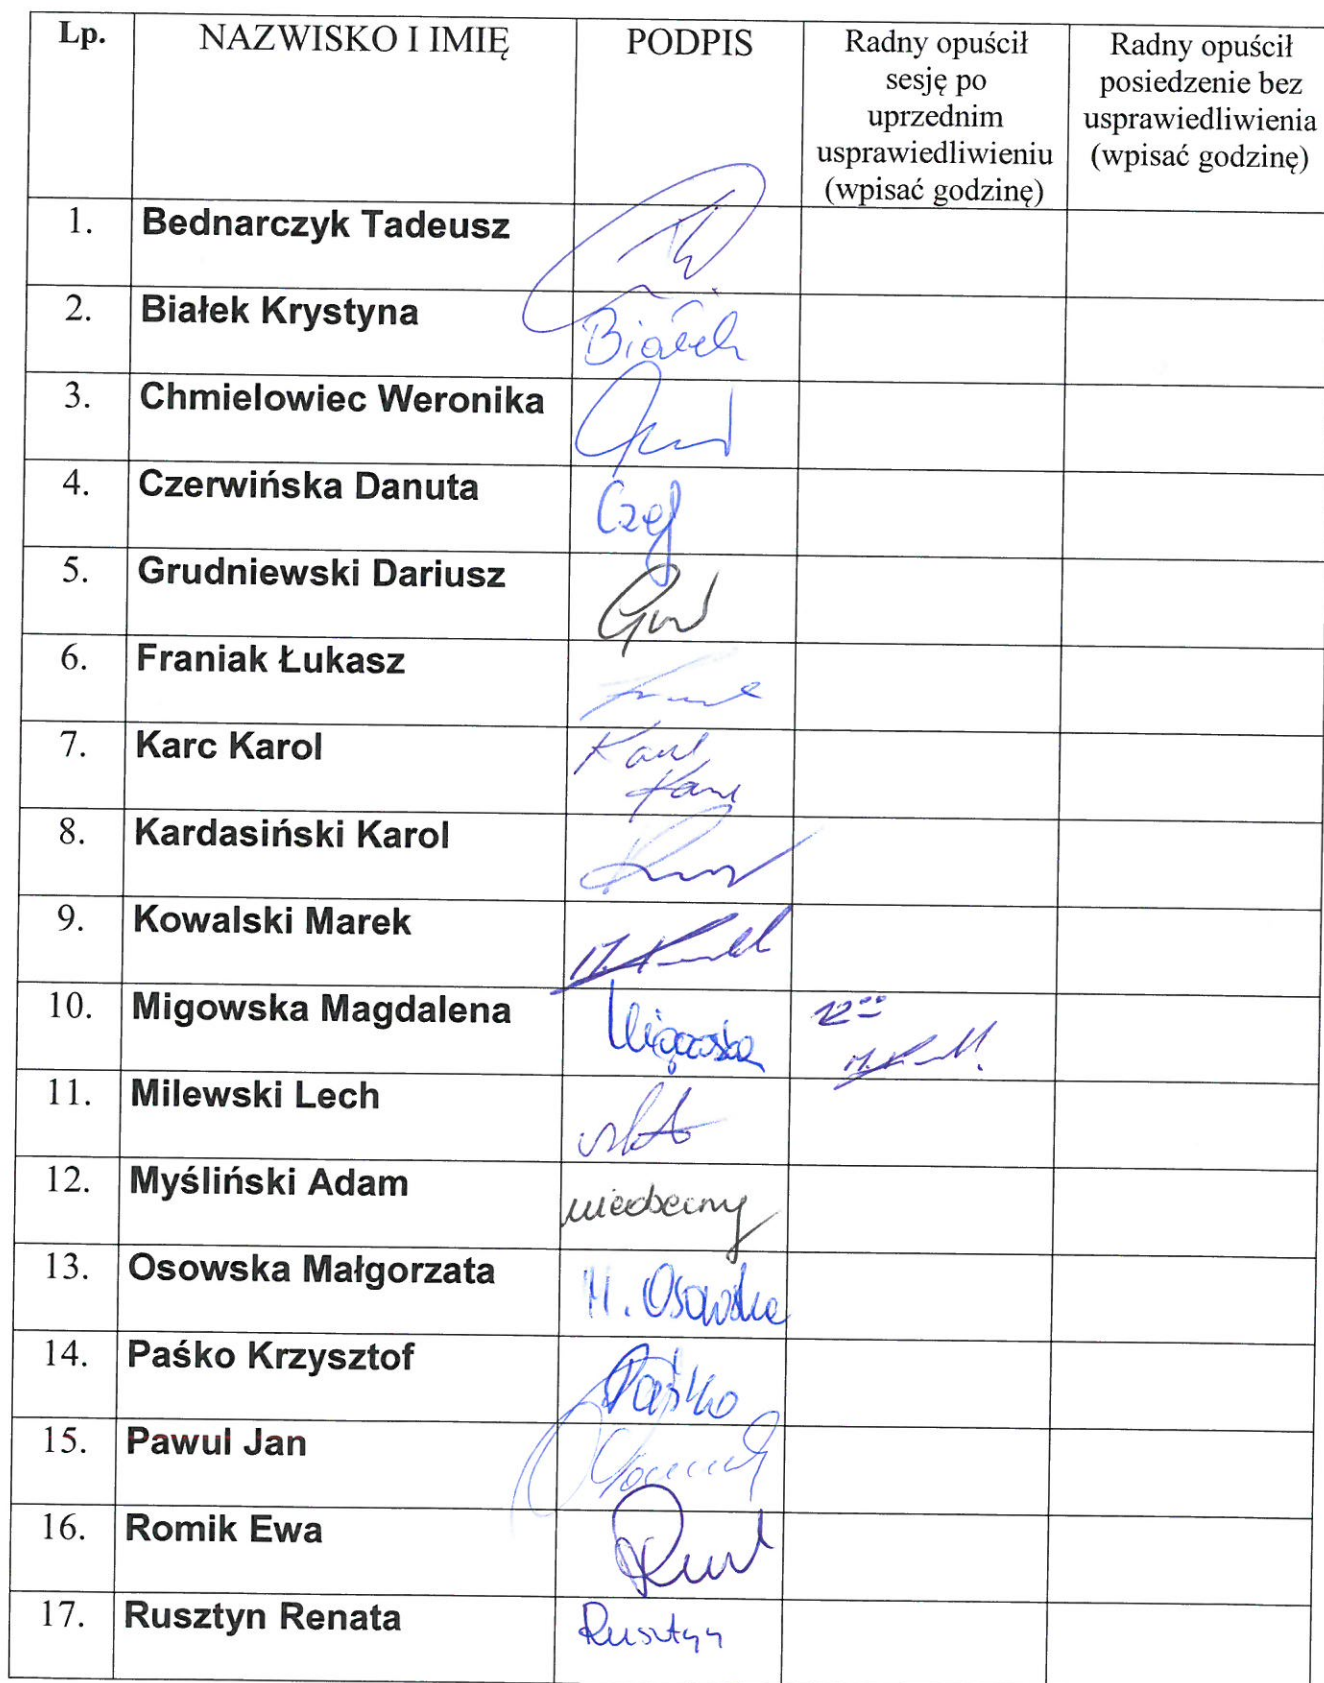 Lp. NAZWISKO I IMIĘ PODPIS Radny opuścił sesję po uprzednim usprawiedliwieniu (wpisać godzinę) Radny opuścił posiedzenie bez usprawiedliwienia (wpisać godzinę)
1. Bednarczyk Tadeusz
2. Białek Krystyna Białek
3. Chmielowiec Weronika
4. Czerwińska Danuta
5. Grudniewski Dariusz
6. Franiak Łukasz
7. Karc Karol Karol Karc
8. Kardasiński Karol
9. Kowalski Marek
10. Migowska Magdalena Migowska 12⁰⁰
11. Milewski Lech
12. Myśliński Adam nieobecny
13. Osowska Małgorzata M. Osowska
14. Paśko Krzysztof Paśko
15. Pawul Jan
16. Romik Ewa
17. Rusztyn Renata Rusztyn